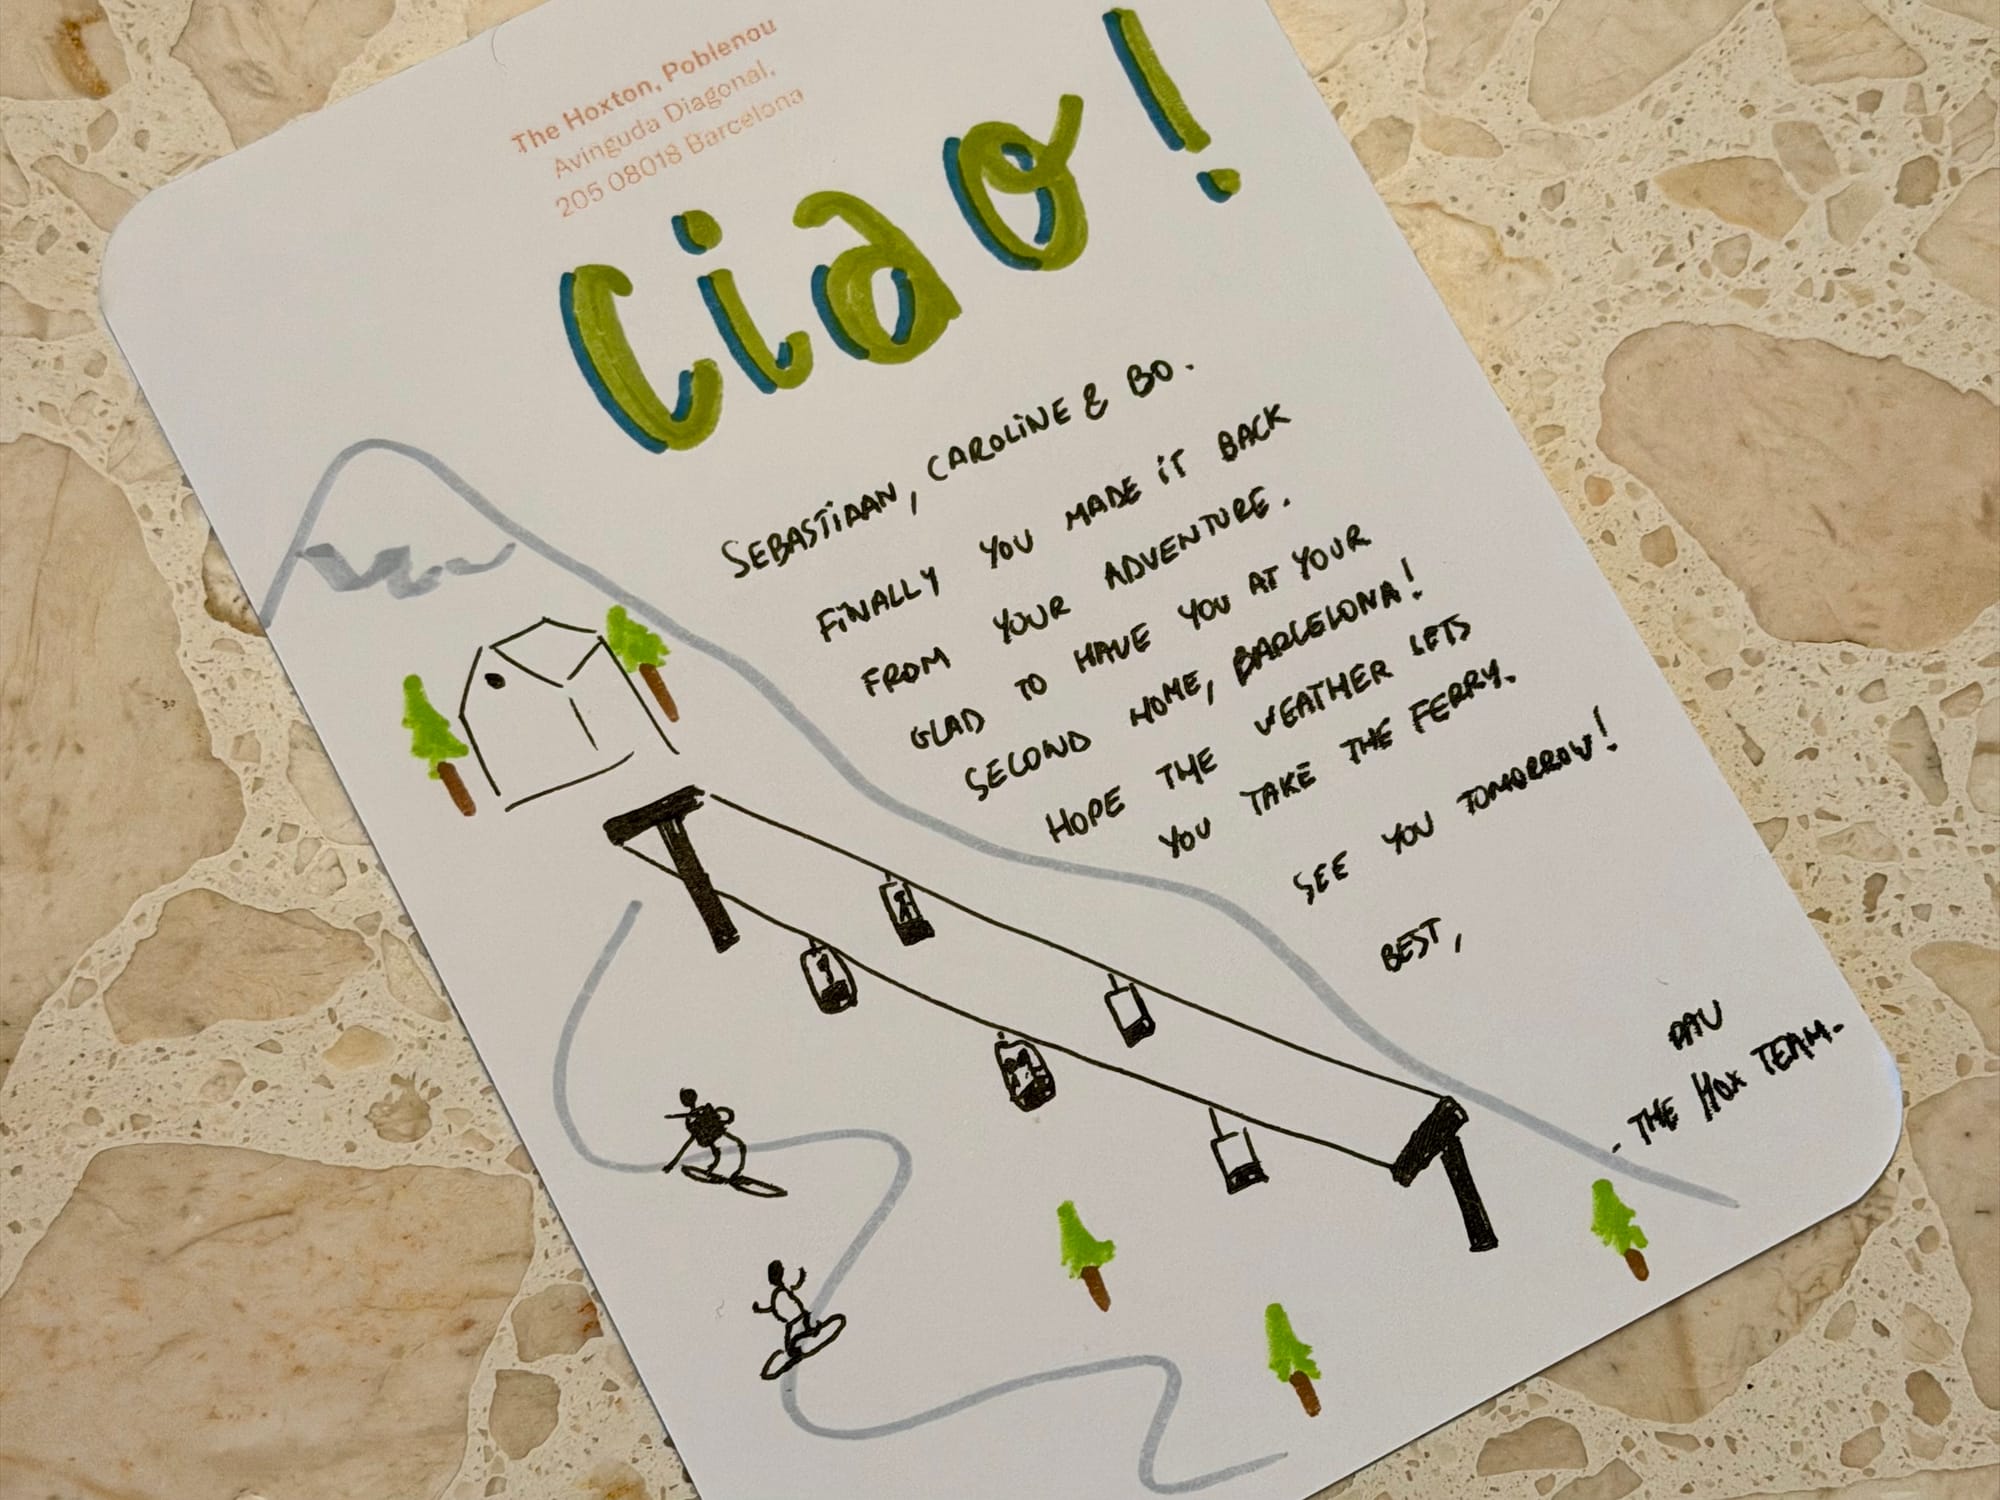 The Hoxton, Poblenou
Avinguda Diagonal,
205 08018 Barcelona
Ciao!
SEBASTIAAN, CAROLINE & BO.
FINALLY YOU MADE IT BACK
FROM YOUR ADVENTURE.
GLAD TO HAVE YOU AT YOUR
SECOND HOME, BARCELONA!
HOPE THE WEATHER LETS
YOU TAKE THE FERRY.
SEE YOU TOMORROW!
BEST,
PAU
- THE HOX TEAM.